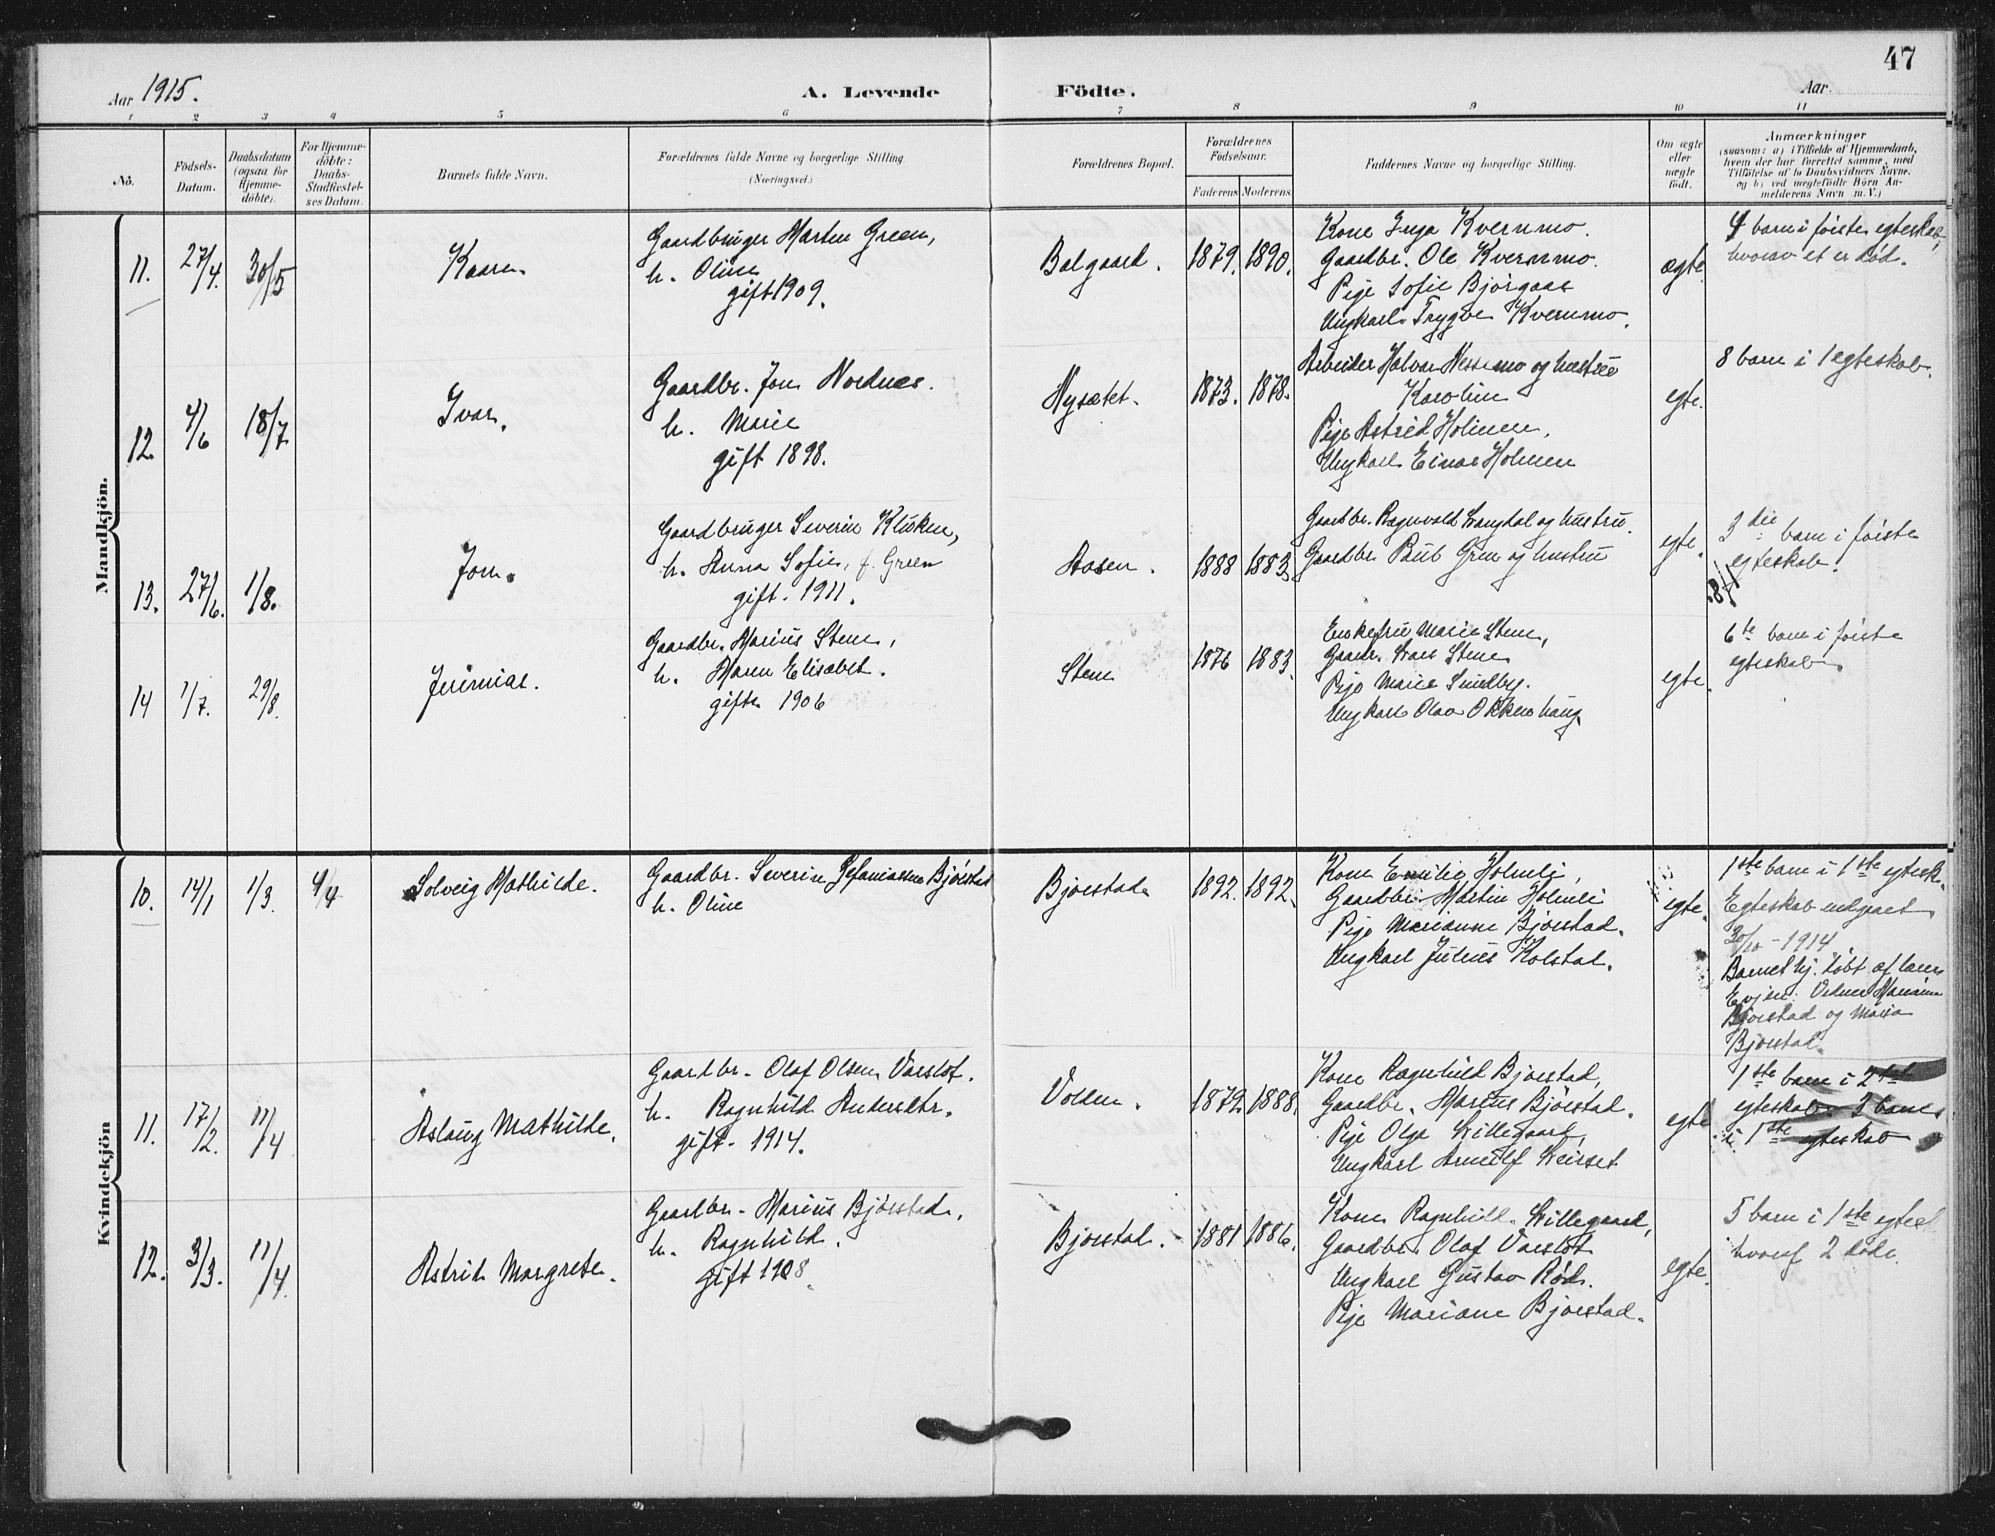 47
Aar 1915.
A. Levende Födte.
Aar
1 2 3 4 5 6 7 8 9 10 11
No.
Födsels-Datum.
Daabsdatum (ogsaa for Hjemme-döbte).
For Hjemme-döbte: Daabs-Stadfæstel-ses Datum.
Barnets fulde Navn.
Forældrenes fulde Navne og borgerlige Stilling
(Næringsvei.)
Forældrenes Bopæl.
Forældrenes Födselsaar.
Faderens Moderens
Faddernes Navne og borgerlige Stilling.
Om ægte eller uægte födt.
Anmærkninger
(saasom: a) i Tilfælde af Hjemmedaab,
hvem der har forrettet samme, med
Tilföielse af to Daabsvidners Navne.
og b) ved uægtefödte Börn An-
melderens Navn m. V.)
Mandkjön.
11. 27/4. 30/5 Kaare Gaardbruger Marten Green,
h. Oline
gift 1909.
Balgaard. 1879. 1890.
Kone Inga Kvernmo.
Gaardbr. Ole Kvernmo.
Pige Sofie Bjørgaas
Ungkarl Trygve Kvernmo.
ægte
4 barn i første egteskab,
hvorav et er død.
12. 4/6 18/7 Ivar. Gaardbr. Jon Nordnes.
h. Marie
gift 1898.
Nysætet. 1873. 1878.
Arbeider Halvar Nessemo og hustru
Karoline
Pige Astrid Holmen.
Ungkarl Einar Holmen
egte.
8 barn i 1 egteskab.
13. 27/6. 1/8. Jon. Gaardbruger Severin Kluken,
h. Anna Sofie, f. Green
gift. 1911.
Aasen. 1888 1883
Gaardbr. Ragnvald Langdal og hustru.
Gaardbr. Green og hustru
egte.
3die barn i første
egteskab.
14 1/7. 29/8. Jerimias. Gaardbr. Marius Stene,
h. Maren Elisabet.
gift 1906
Stene 1876 1883.
Enkefru Marie Stene,
Gaardbr. Stene
Pige Marie Smedby.
Ungkarl Olav Okkenhaug.
egte.
6te barn i første
egteskab
Kvindekjön
10. 14/1 1/3. 4/4 Solveig Mathilde. Gaardbr. Severin Bjørstad
h. Oline
Bjørstad 1892. 1892.
Kone Emilie Holmli,
Gaardbr. Martin Holmli
Pige Marianne Bjørstad.
Ungkarl Julius Kolstad.
egte.
1ste barn i 1ste egtesk.
Egteskab indgaaet
30/10 - 1914.
Barnet hj. døbt af
Evjen. Vidner Marianne
Bjørstad og Maria
Bjørstad.
11. 17/2. 11/4 Aslaug Mathilde. Gaardbr. Olaf Olsen Varslot.
h. Ragnhild Andersdtr.
gift. 1914.
Volden. 1872 1888.
Kone Ragnhild Bjørstad,
Gaardbr. Marius Bjørstad.
Pige Olga Lillegaard,
Ungkarl Arnulf
egte
1ste barn i 2det
egteskab 2 barn
i 1ste egteskab
12. 3/3. 11/4. Astrid Margrete. Gaardbr. Marius Bjørstad,
h. Ragnhild.
gift 1908.
Bjørstad. 1881 1886.
Kone Ragnhild Lillegaard,
Gaardbr. Olaf Varslot
Ungkarl Gustav Rød.
Pige Mariane Bjørstad.
egte.
5 barn i 1ste egtesk
hvoraf 2 døde.